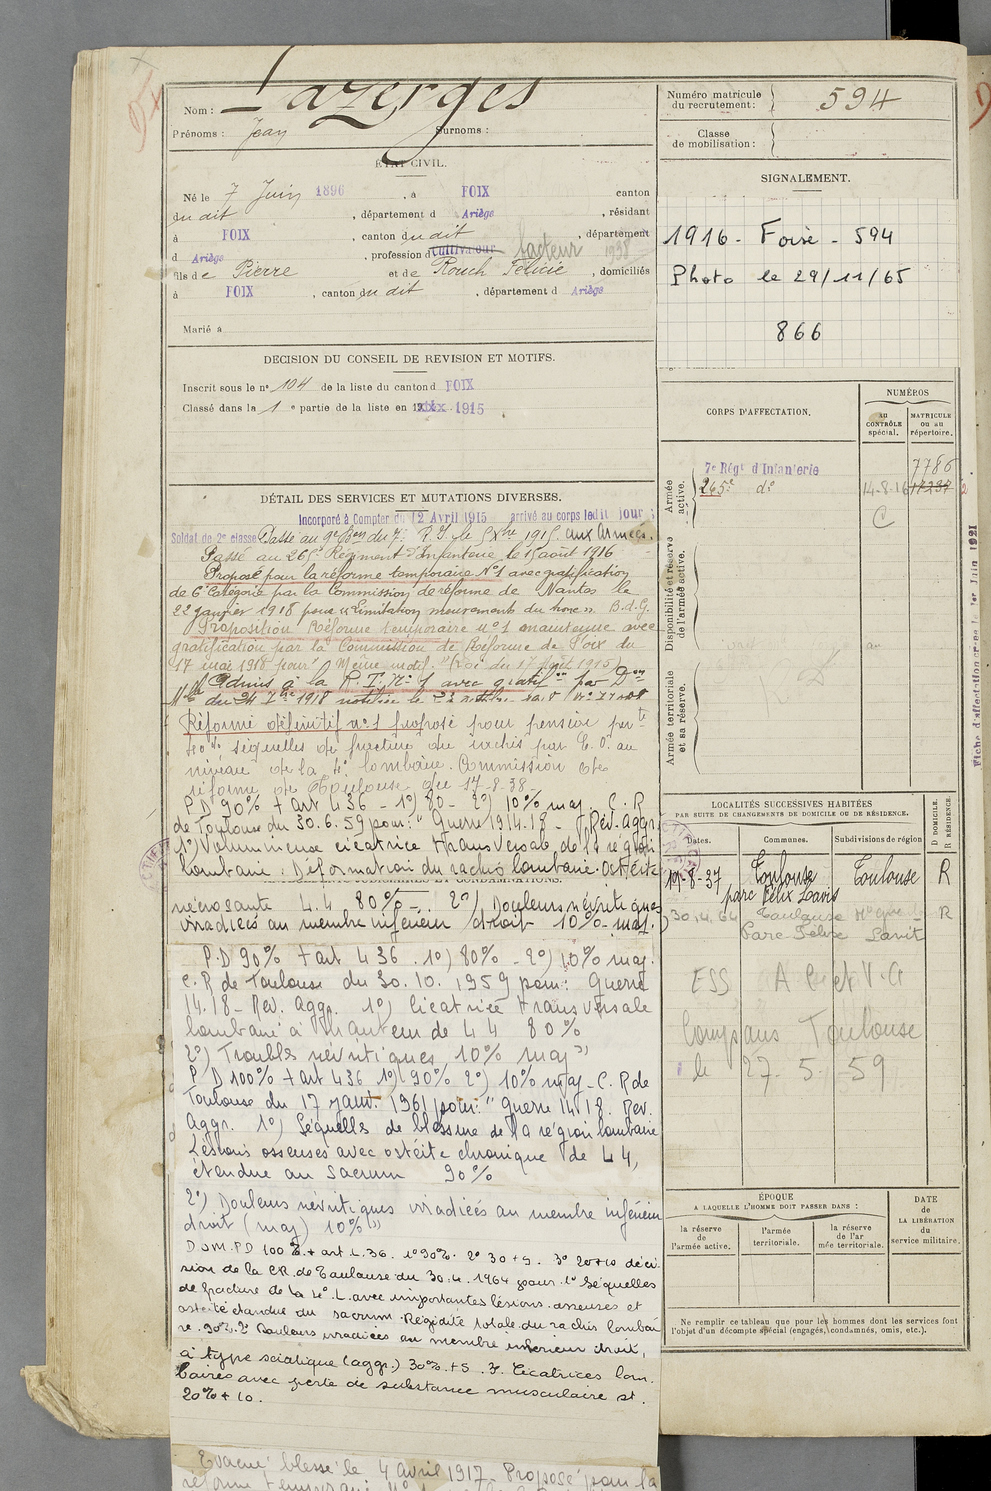 Nom : Lazerges
Prénoms : Jean Surnoms :
ÉTAT CIVIL.
Né le 7 Juin 1896, a FOIX canton
du dit, département d Ariège, résidant
à FOIX, canton du dit, département
d Ariège, profession d Cultivateur facteur 1938
fils de Pierre et de Rouch Félicie, domiciliés
à FOIX, canton du dit, département d Ariège
Marié à
DECISION DU CONSEIL DE REVISION ET MOTIFS.
Inscrit sous le n° 104 de la liste du canton d FOIX
Classé dans la 1e partie de la liste en 1915
DÉTAIL DES SERVICES ET MUTATIONS DIVERSES.
Incorporé à Compter du 12 Avril 1915 arrivé au corps ledit jour ;
Soldat de 2e classe Passé au 9e Bon du 7e R.I. le 5 Xbre 1915. aux Armées.
Passé au 265e Régiment d'Infanterie le 15 aout 1916
Proposé pour la réforme temporaire N°1 avec gratification
de 6e Catégorie par la Commission de réforme de Nantes le
22 janvier 1918 pour "Limitation mouvements du tronc". B.d.G.
Proposition Réforme temporaire n°1 maintenue avec
gratification par la Commission de Réforme de Foix du
17 mai 1918 pour "Même motif." (Loi du 17 Août 1915)
Admis à la R.T. N°1 avec gratifon par Don
Mlle du 24 1918 notifiée le
Réformé définitif n°1 proposé pour pension pte
séquelles de fracture du rachis par E.O. au
niveau de la 4e lombaire. Commission de
réforme de Toulouse du 17-8-38-
P.D 90% + art 436 - 1°) 80 - 2°) 10% maj. C.R
de Toulouse du 30.6.59 pour : "Guerre 1914.18 - Rev. Aggr.
1°) Volumineuse cicatrice transversale de la région
lombaire : Déformation du rachis lombaire. Ostéite
nécrosante L4 80% - 2°) Douleurs névritiques
irradiées au membre inférieur droit 10% maj.
P.D 90% + art 436. 1°) 80% - 2°) 10% maj.
C.R de Toulouse du 30.10.1959 pour : Guerre
14.18 - Rev. Aggr. 1°) Cicatrice transversale
lombaire à hauteur de L4 80%
2°) Troubles névritiques 10% maj"
P.D 100% + art 436 1°) 90% 2°) 10% maj - C.R de
Toulouse du 17 janv. 1961 pour : "Guerre 14.18. Rev.
Aggr. 1°) Séquelles de blessure de la région lombaire
Lésions osseuses avec ostéite chronique de L4,
étendue au sacrum 90%
2°) Douleurs névritiques irradiées au membre inférieur
droit (maj) 10%"
D.S.M. P.D 100% + art L.36. 1° 90%. 2° 30+5. 3° 20+10 déci
sion de la CR. de Toulouse du 30.4.1964 pour 1° Séquelles
de fracture de la 4e L. avec importantes lésions osseuses et
ostéite étendue du sacrum. Rigidité totale du rachis lombai
re. 90%. 2° Douleurs irradiées au membre inférieur droit,
à type sciatique (aggr.) 30%. +5. 3° Cicatrices lom.
baires avec perte de substance musculaire st.
20% + 10.
Evacué blessé le 4 avril 1917 - Proposé pour la
Numéro matricule
du recrutement : 594
Classe
de mobilisation :
SIGNALEMENT.
1916 - Foix - 594
Photo le 29/11/65
866
CORPS D'AFFECTATION.
NUMÉROS
AU
CONTRÔLE
spécial.
MATRICULE
ou au
répertoire.
Armée
active.
7e Régt d'Infanterie 7786
265e do 14-8-16
C
Disponibilité et réserve
de l'armée active.
Armée territoriale
et sa réserve.
Fiche d'affectation créée le 1er Juin 1921
LOCALITÉS SUCCESSIVES HABITÉES
PAR SUITE DE CHANGEMENTS DE DOMICILE OU DE RÉSIDENCE.
Dates. Communes. Subdivisions de région
D DOMICILE.
R RÉSIDENCE.
19-8-37 Toulouse Toulouse R
parc Félix Lavit
30.4.64 Toulouse Hte Gne R
Parc Félix Lavit
ESS A C et V.G
Compans Toulouse
le 27.5.59
ÉPOQUE
A LAQUELLE L'HOMME DOIT PASSER DANS :
la réserve
de
l'armée active.
l'armée
territoriale.
la réserve
de l'ar
mée territoriale.
DATE
de
LA LIBÉRATION
du
service militaire.
Ne remplir ce tableau que pour les hommes dont les services font
l'objet d'un décompte spécial (engagés, condamnés, omis, etc.).